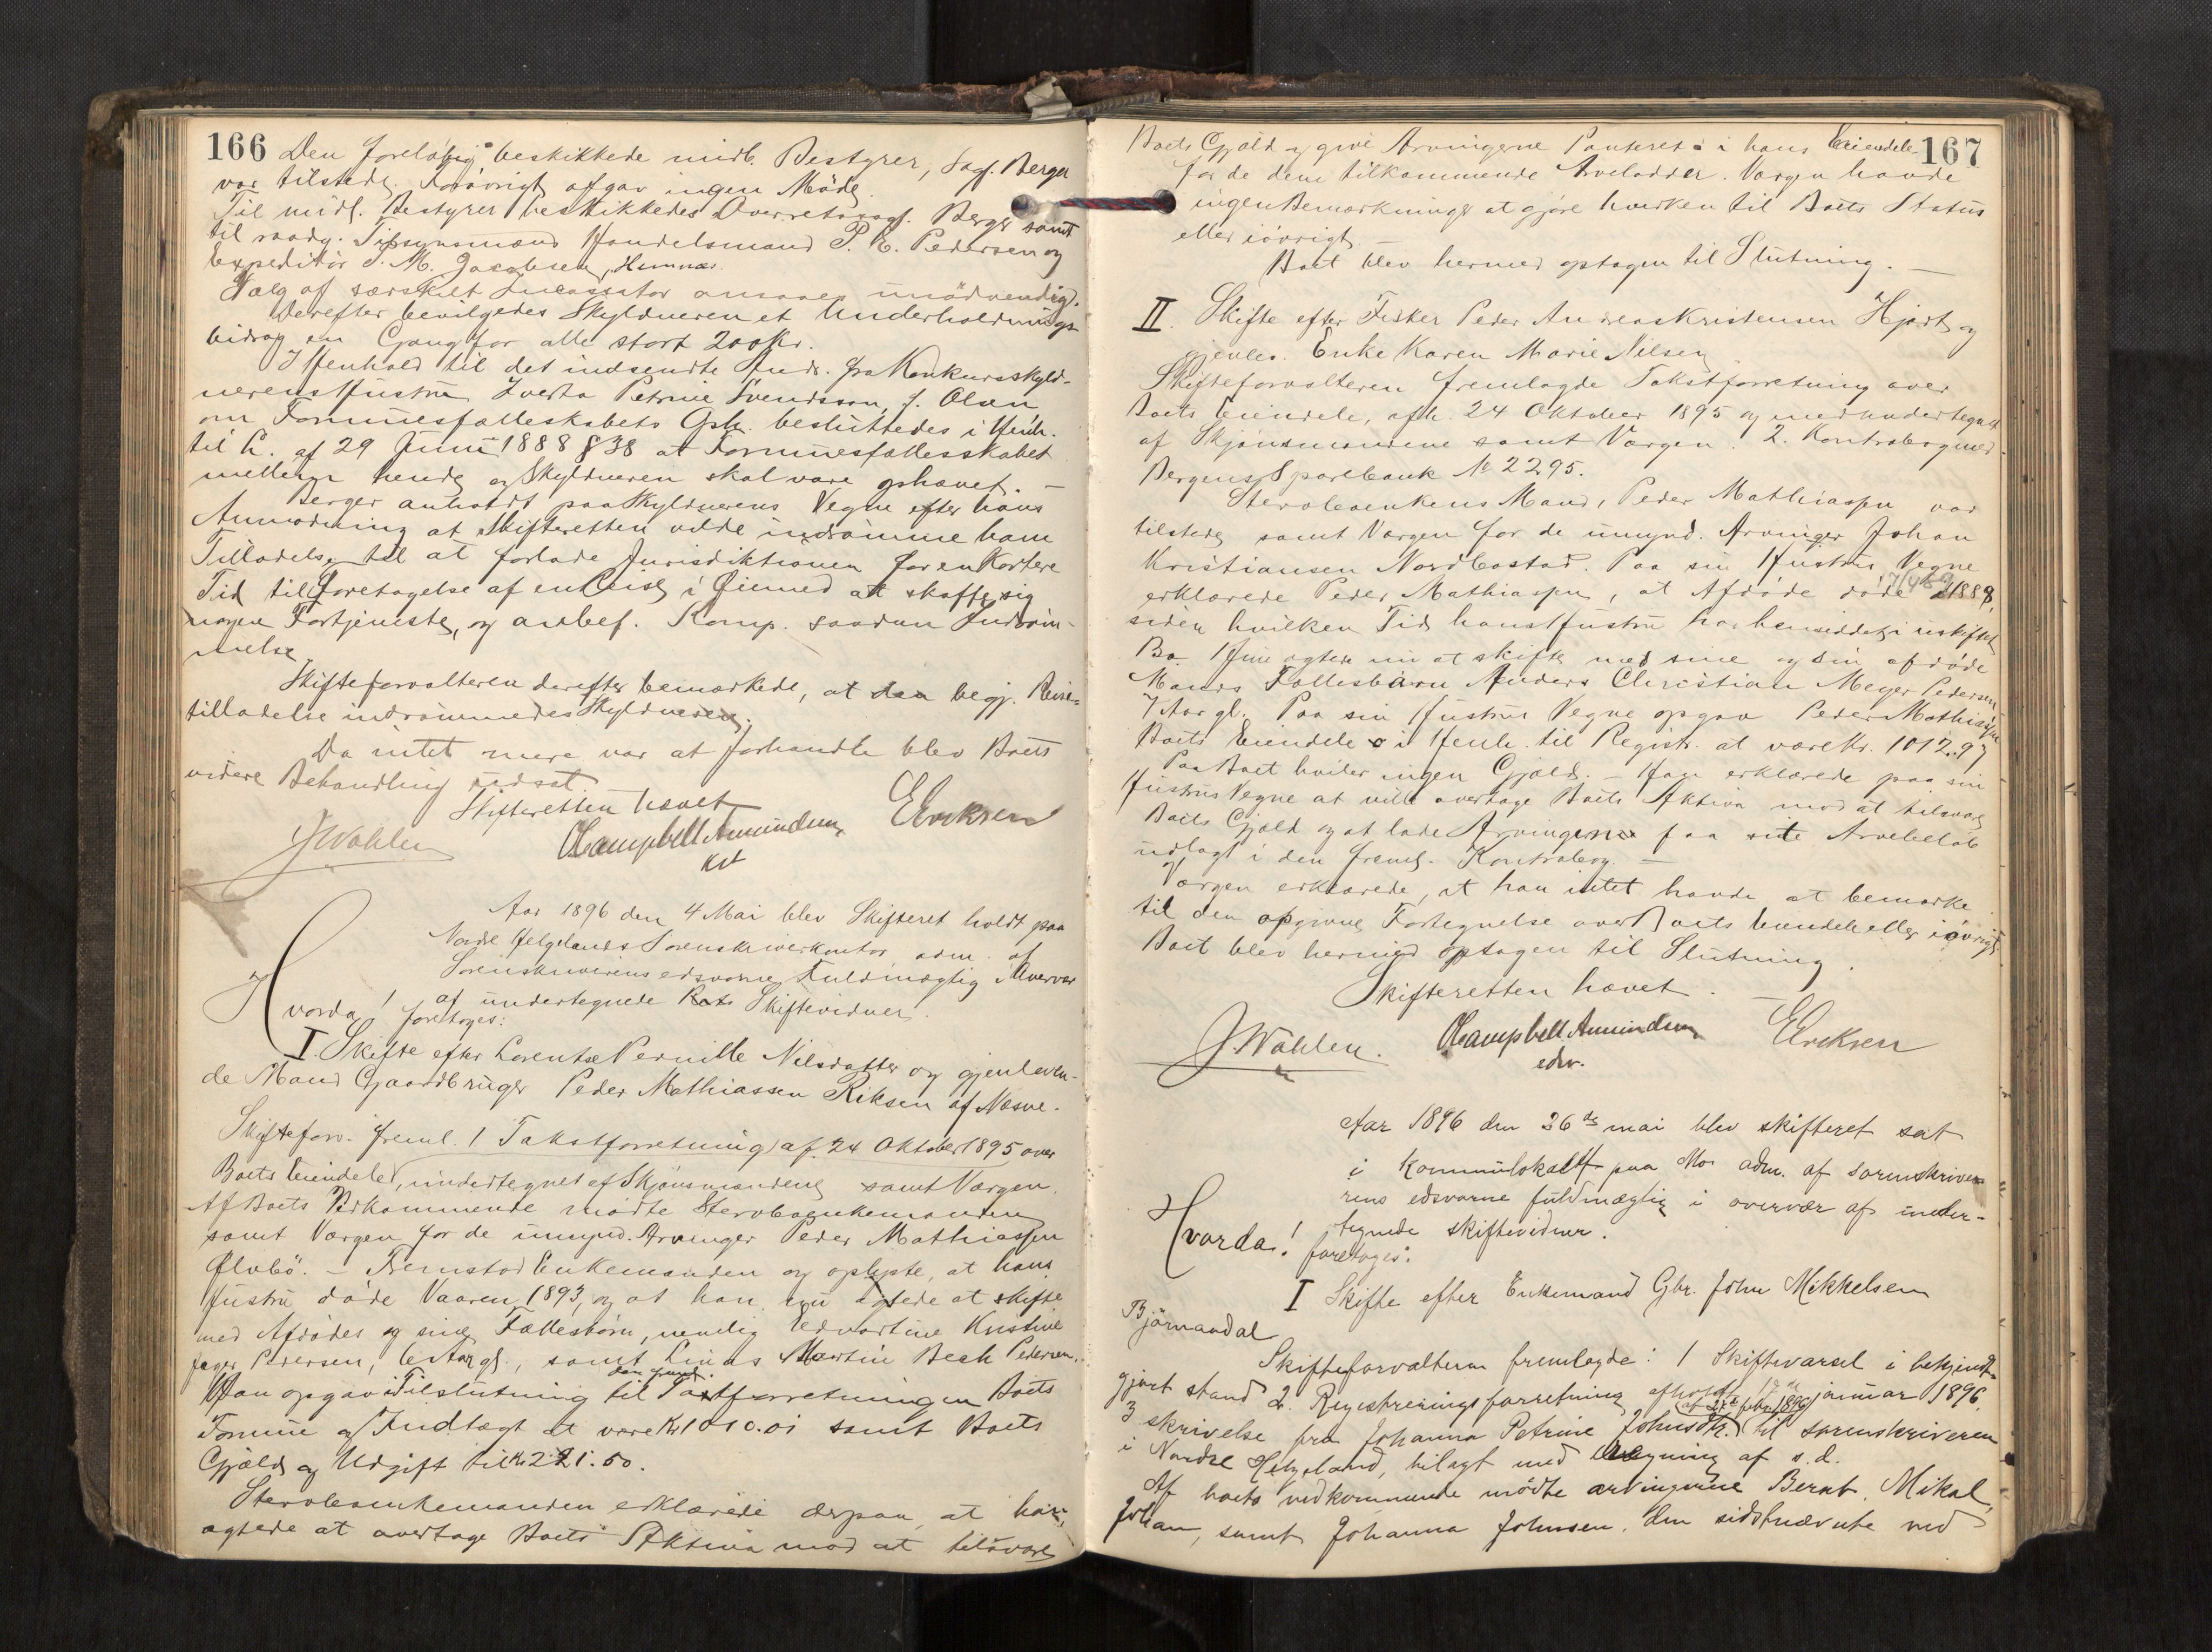 166 Den foreløbig beskikkede midl. Bestyrer, Sagf. Berger
var tilstede. Forøvrigt afgav ingen Møde.
Til midl. Bestyrer beskikkedes Overretssagf. Berger samt
til raadg. Tilsynsmænd Handelsmand P. E. Pedersen og
Expeditør P. M. Jacobsen, Hemnæs.
Valg af særskilt Incassator ansaaes unødvendig.
Derefter bevilgedes Skyldneren et Underholdnings-
bidrag en Gang for alle stort 200 Kr.
I Henhold til det indsendte Andr. fra Konkursskyld-
nerens Hustru Petrine Svendsson, f. Olsen
om Formuesfælleskabets Oph. besluttedes i Henh.
til L. af 29 Juni 1888 § 38 at Formuesfællesskabet
mellem hende og Skyldneren skal være ophævet. —
Berger anholdt paa Skyldnerens Vegne efter hans
Anmodning at Skifteretten vilde indrømme ham
Tilladelse til at forlade Jurisdiktionen for en kortere
Tid til Foretagelse af en Reise i Øiemed at skaffe sig
nogen Fortjeneste, og anbef. Komp. saadan Indrøm-
melse.
Skifteforvalteren derefter bemærkede, at den begj. Reise-
tilladelse indrømmedes Skyldneren.
Da intet mere var at forhandle blev Boets
videre Behandling udsat.
Skifteretten hævet
J Wahlen OCampbell Amundsen EEriksen
kst
Aar 1896 den 4 Mai blev Skifteret holdt paa
Nordre Helgelands Sorenskriverkontor adm. af
Sorenskriverens edsvorne Fuldmægtig i Overvær
af undertegnede Skiftevidner.
Hvorda! foretoges:
I. Skifte efter Lorentse Pernille Nilsdatter og gjenleven-
de Mand Gaardbruger Peder Mathiassen Riksen af Næsne.
Skifteforv. freml. 1 Takstforretning af 24 Oktober 1895 over
Boets Eiendele, undertegnet af Skjønsmændene samt Værgen.
Af Boets Vedkommende mødte Stervboenkemanden
samt Værgen for de umynd. Arvinger Peder Mathiassen
Fremstod Enkemanden og oplyste, at hans
Hustru døde Vaaren 1893, og at han nu agtede at skifte
med Afdødes og sine Fællesbørn, nemlig Edvartine Kristine
Jager Pedersen, 6 Aar gl., samt Linds Martin Bech Pedersen.
Han opgav i Tilslutning til den freml. Takstforretningen Boets
Formue og Indtægt at være Kr 1010.01 samt Boets
Gjæld og Udgift til Kr 221.50.
Stervboenkemanden erklærede derpaa, at han
agtede at overtage Boets Aktiva mod at tilsvare
167
Boets Gjæld og give Arvingerne Panteret i hans Eiendele
for de dem tilkommende Arvelodder. Værgen havde
ingen Bemærkninger at gjøre hverken til Boets Status
eller iøvrigt.
Boet blev hermed optagen til Slutning. —
II. Skifte efter Fisker Peder Andreas Kristensen Hjort og
gjenlev. Enke Karen Marie Nilsen
Skifteforvalteren fremlagde Takstforretning over
Boets Eiendele, afh. 24 Oktober 1895 og medundertegnet
af Skjønsmændene samt Værgen. 2. Kontrabog med
Bergens Sparebank No 2295.
Stervboenkens Mand, Peder Mathiassen var
tilstede samt Værgen for de umynd. Arvinger Johan
Kristiansen Nordbostad. Paa sin Hustrus Vegne
erklærede Peder Mathiassen, at Afdøde døde 1888,
siden hvilken Tid hans Hustru har hensiddet i uskiftet
Bo. Hun agtede nu at skifte med sine og sin afdøde
Mands Fællesbarn Anders Christian Meyer Pedersen
7 Aar gl. Paa sin Hustrus Vegne opgav Peder Mathiassen
Boets Eiendele i Henh. til Registr. at være Kr. 1012.97
Paa Boet hviler ingen Gjæld. — Han erklærede paa sin
Hustrus Vegne at ville overtage Boets Aktiva mod at tilsvare
Boets Gjæld og at lade Arvingerne faa sit Arvebeløb
udlagt i den freml. Kontrabog. —
Værgen erklærede, at han intet havde at bemærke
til den opgivne Fortegnelse over Boets Eiendele eller iøvrigt.
Boet blev hermed optagen til Slutning.
Skifteretten hævet. —
J Wahlen. OCampbell Amundsen EEriksen
edsv.
Aar 1896 den 26de mai blev skifteret sat
i kommunlokalet paa Mo adm. af sorenskrive-
rens edsvorne fuldmægtig i overvær af under-
tegnede skiftevidner.
Hvorda! foretoges:
I Skifte efter Enkemand Gbr. John Mikkelsen
Bjørnaadal
Skifteforvalteren fremlagde: 1 Skiftevarsel i bekjendt-
gjort stand 2. Registreringsforretning afholdt januar 1896.
3 skrivelse fra Johanna Petrine Johnsdtr. (af 27de febr. 1896) til sorenskriveren
i Nordre Helgeland, bilagt med Regning af s.d.
Af boets vedkommende mødte arvingerne Bernt, Mikal,
Johan, samt Johanna Johnsen, den sidstnævnte med